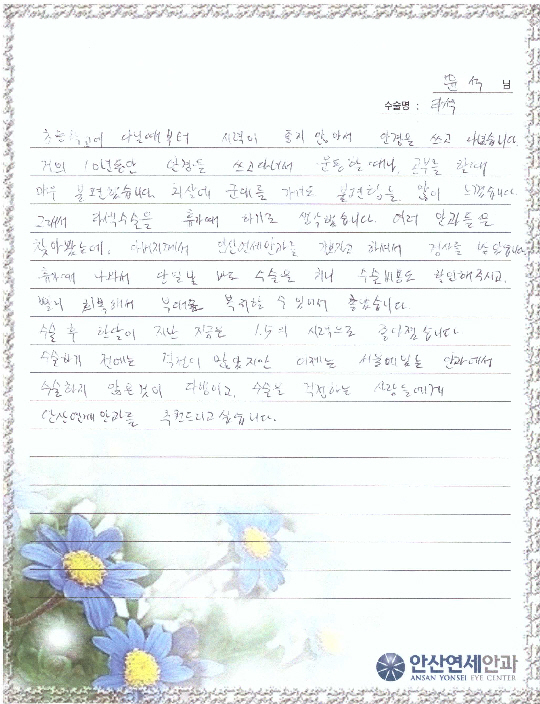 문 석 님
수술명 : 라섹
초등학교에 다닐때부터 시력이 좋지 않아서 안경을 쓰고 다녔습니다.
거의 10년동안 안경을 쓰고다녀서 운동할때나, 공부를 할때
매우 불편했습니다. 회상에 군대를 가서도 불편함을 많이 느꼈습니다.
그래서 라섹수술을 휴가때 하기로 생각했습니다. 여러 안과를
찾아봤는데, 아버지께서 안산연세안과를 하셔서 검사를 받았습니다.
휴가때 나와서 당일날 바로 수술을 하니 수술비용도 할인해주시고,
빨리 회복해서 부대로 복귀할 수 있어서 좋았습니다.
수술 후 한달이 지난 지금은 1.5의 시력으로 좋아졌습니다.
수술하기 전에는 걱정이 많았지만 이제는 서울에있는 안과에서
수술하지 않은것이 다행이고, 수술을 걱정하는 사람들에게
안산연세안과를 추천드리고싶습니다.
안산연세안과
ANSAN YONSEI EYE CENTER